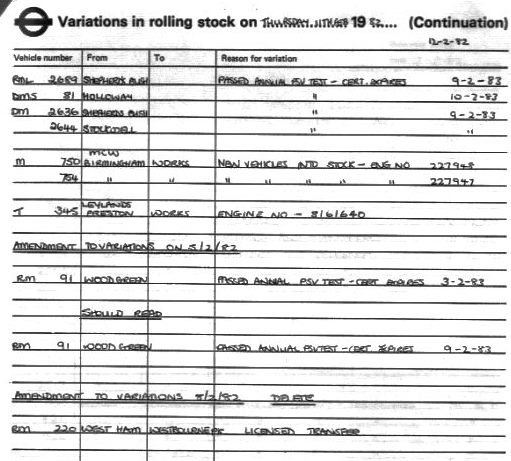 Variations in rolling stock on THURSDAY, 11TH FEB 19 82.... (Continuation)
12-2-82
Vehicle number From To Reason for variation
RML 2689 SHEPHERDS BUSH PASSED ANNUAL PSV TEST - CERT. EXPIRES 9-2-83
DMS 81 HOLLOWAY " 10-2-83
DM 2636 SHEPHERDS BUSH " 9-2-83
2644 STOCKWELL " "
MCW
M 750 BIRMINGHAM WORKS NEW VEHICLES INTO STOCK - ENG NO 227948
754 " " " " " " " 227947
LEYLANDS
T 345 PRESTON WORKS ENGINE NO - 8/61640
AMENDMENT TO VARIATIONS ON 5/2/82
RM 91 WOOD GREEN PASSED ANNUAL PSV TEST - CERT EXPIRES 3-2-83
SHOULD READ
RM 91 WOOD GREEN PASSED ANNUAL PSV TEST - CERT. EXPIRES 9-2-83
AMENDMENT TO VARIATIONS 5/2/82 DELETE
RM 220 WEST HAM WESTBOURNE PK LICENSED TRANSFER